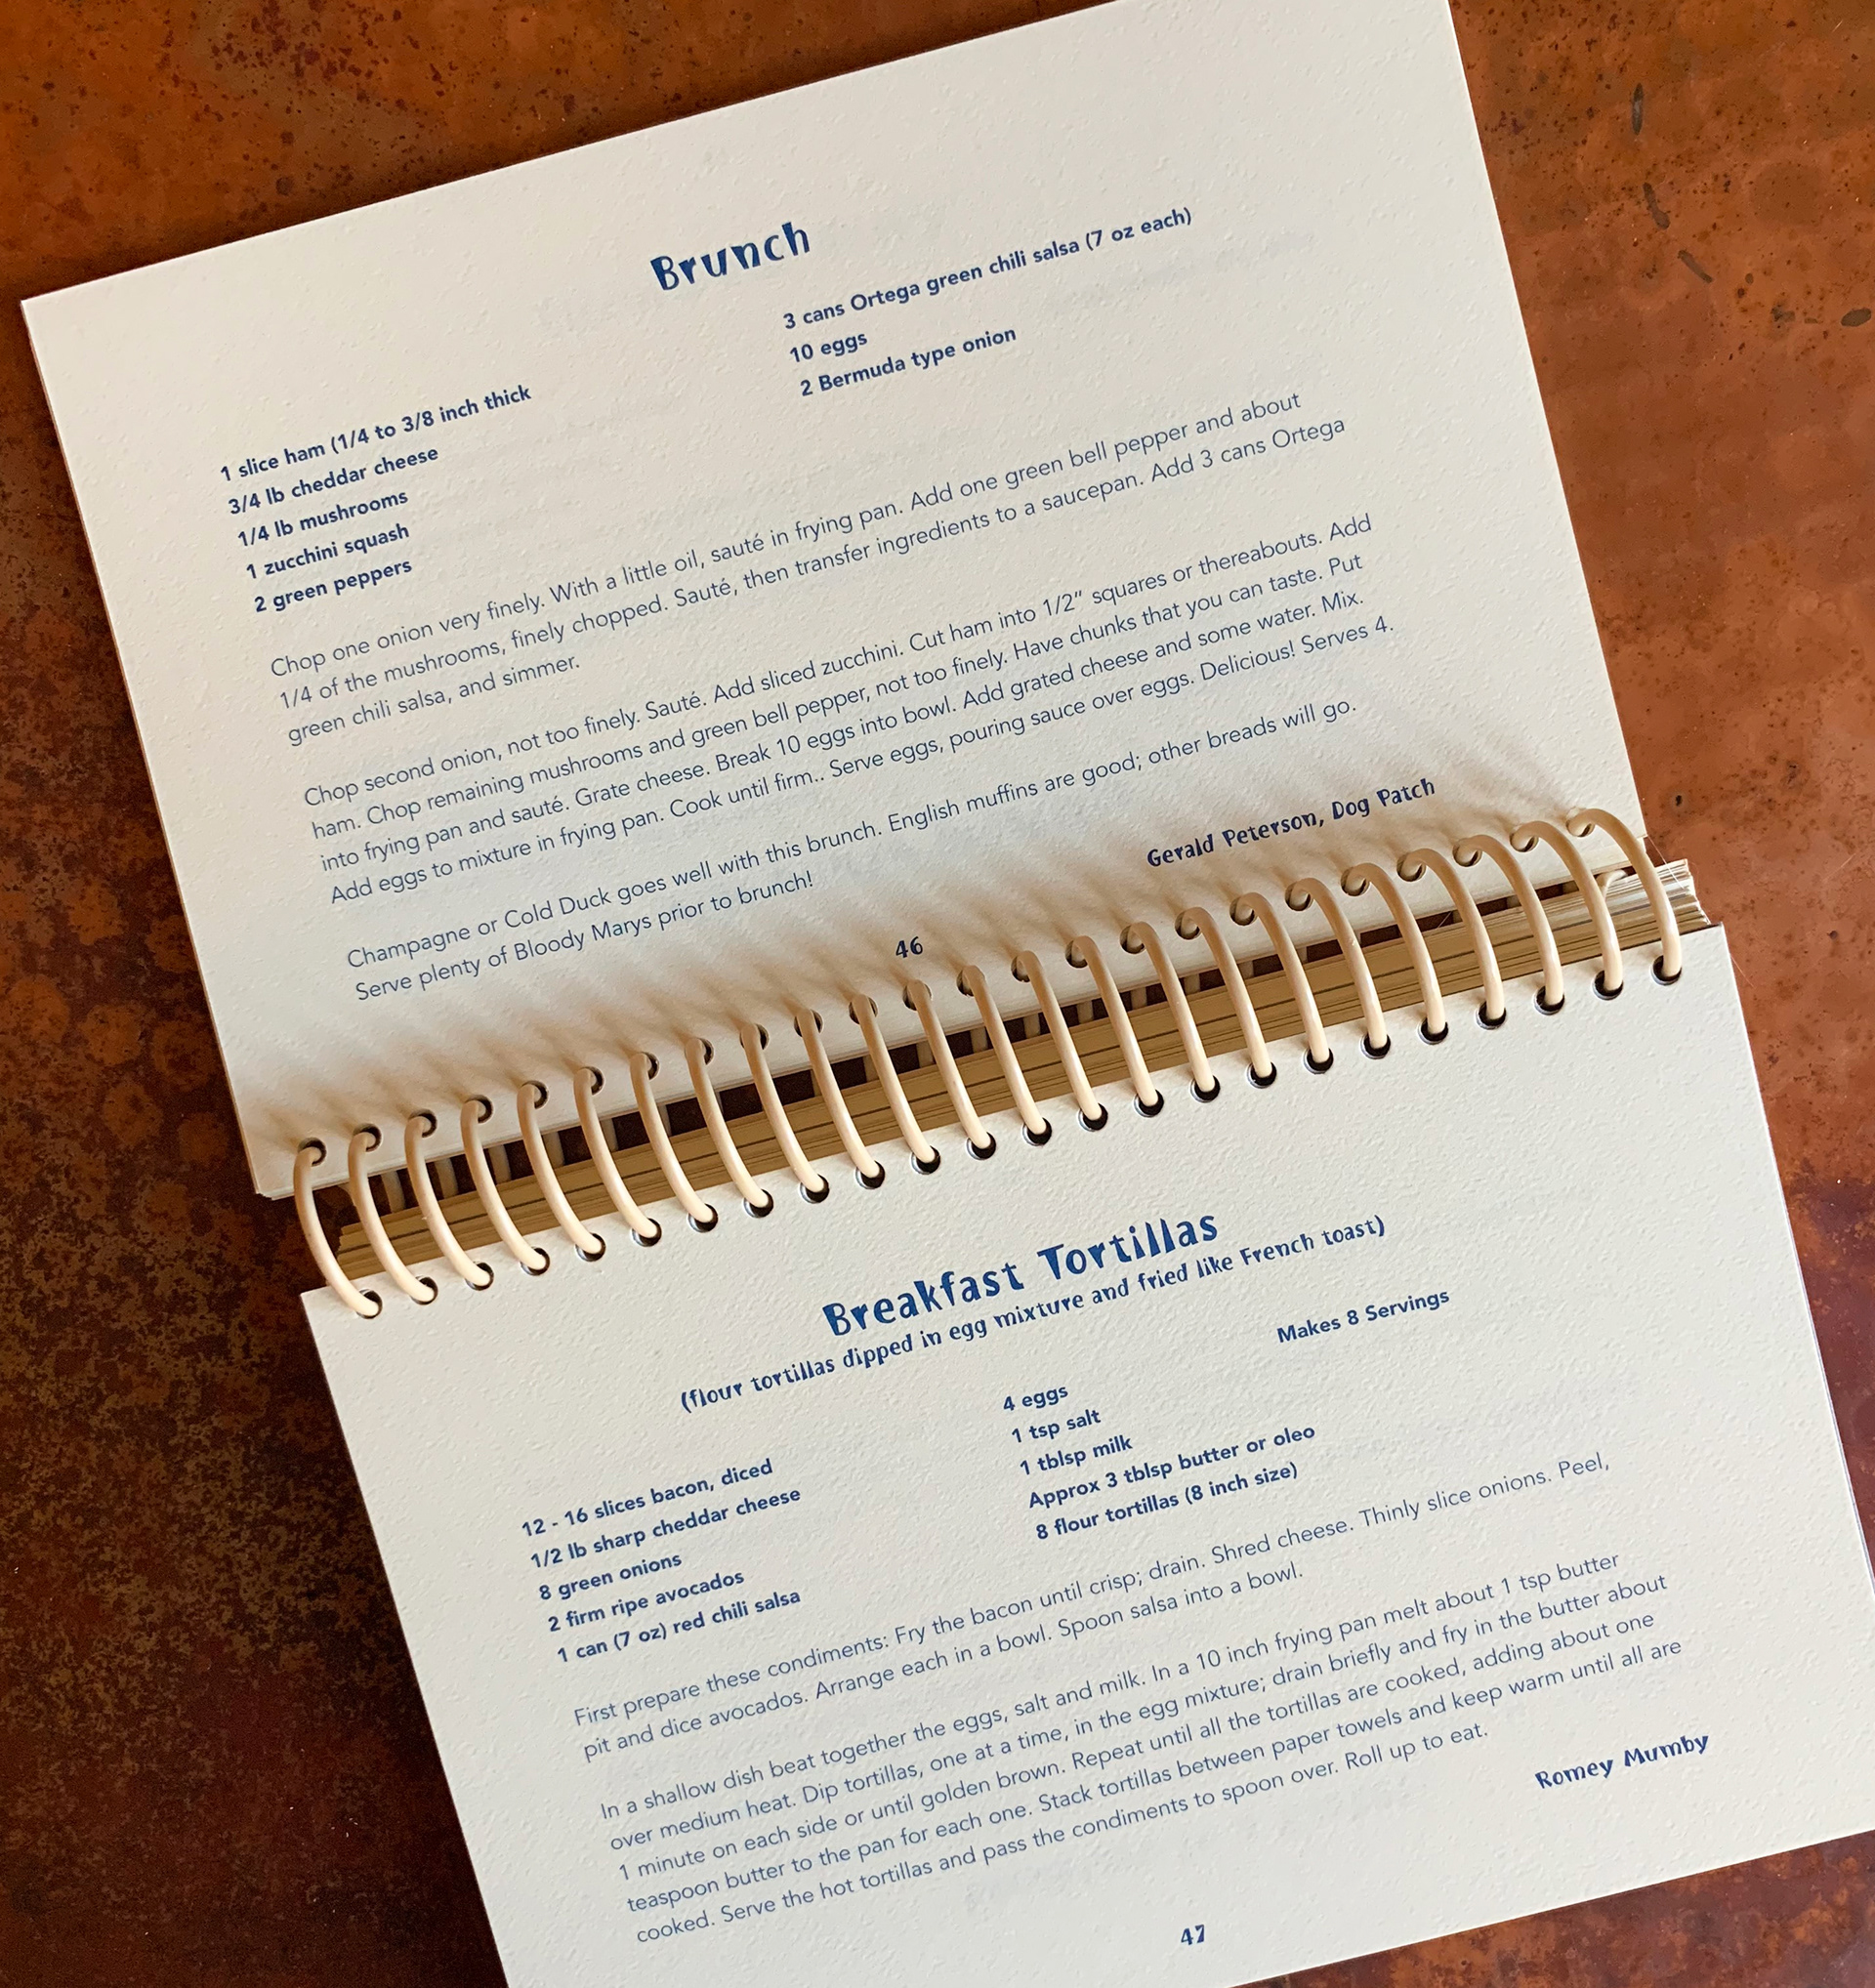 Brunch
1 slice ham (1/4 to 3/8 inch thick
3/4 lb cheddar cheese
1/4 lb mushrooms
1 zucchini squash
2 green peppers
3 cans Ortega green chili salsa (7 oz each)
10 eggs
2 Bermuda type onion
Chop one onion very finely. With a little oil, sauté in frying pan. Add one green bell pepper and about
1/4 of the mushrooms, finely chopped. Sauté, then transfer ingredients to a saucepan. Add 3 cans Ortega
green chili salsa, and simmer.
Chop second onion, not too finely. Sauté. Add sliced zucchini. Cut ham into 1/2" squares or thereabouts. Add
ham. Chop remaining mushrooms and green bell pepper, not too finely. Have chunks that you can taste. Put
into frying pan and sauté. Grate cheese. Break 10 eggs into bowl. Add grated cheese and some water. Mix.
Add eggs to mixture in frying pan. Cook until firm.. Serve eggs, pouring sauce over eggs. Delicious! Serves 4.
Champagne or Cold Duck goes well with this brunch. English muffins are good; other breads will go.
Serve plenty of Bloody Marys prior to brunch!
Gerald Peterson, Dog Patch
46
Breakfast Tortillas
(flour tortillas dipped in egg mixture and fried like French toast)
Makes 8 Servings
12 - 16 slices bacon, diced
1/2 lb sharp cheddar cheese
8 green onions
2 firm ripe avocados
1 can (7 oz) red chili salsa
4 eggs
1 tsp salt
1 tblsp milk
Approx 3 tblsp butter or oleo
8 flour tortillas (8 inch size)
First prepare these condiments: Fry the bacon until crisp; drain. Shred cheese. Thinly slice onions. Peel,
pit and dice avocados. Arrange each in a bowl. Spoon salsa into a bowl.
In a shallow dish beat together the eggs, salt and milk. In a 10 inch frying pan melt about 1 tsp butter
over medium heat. Dip tortillas, one at a time, in the egg mixture; drain briefly and fry in the butter about
1 minute on each side or until golden brown. Repeat until all the tortillas are cooked, adding about one
teaspoon butter to the pan for each one. Stack tortillas between paper towels and keep warm until all are
cooked. Serve the hot tortillas and pass the condiments to spoon over. Roll up to eat.
Romey Mumby
47